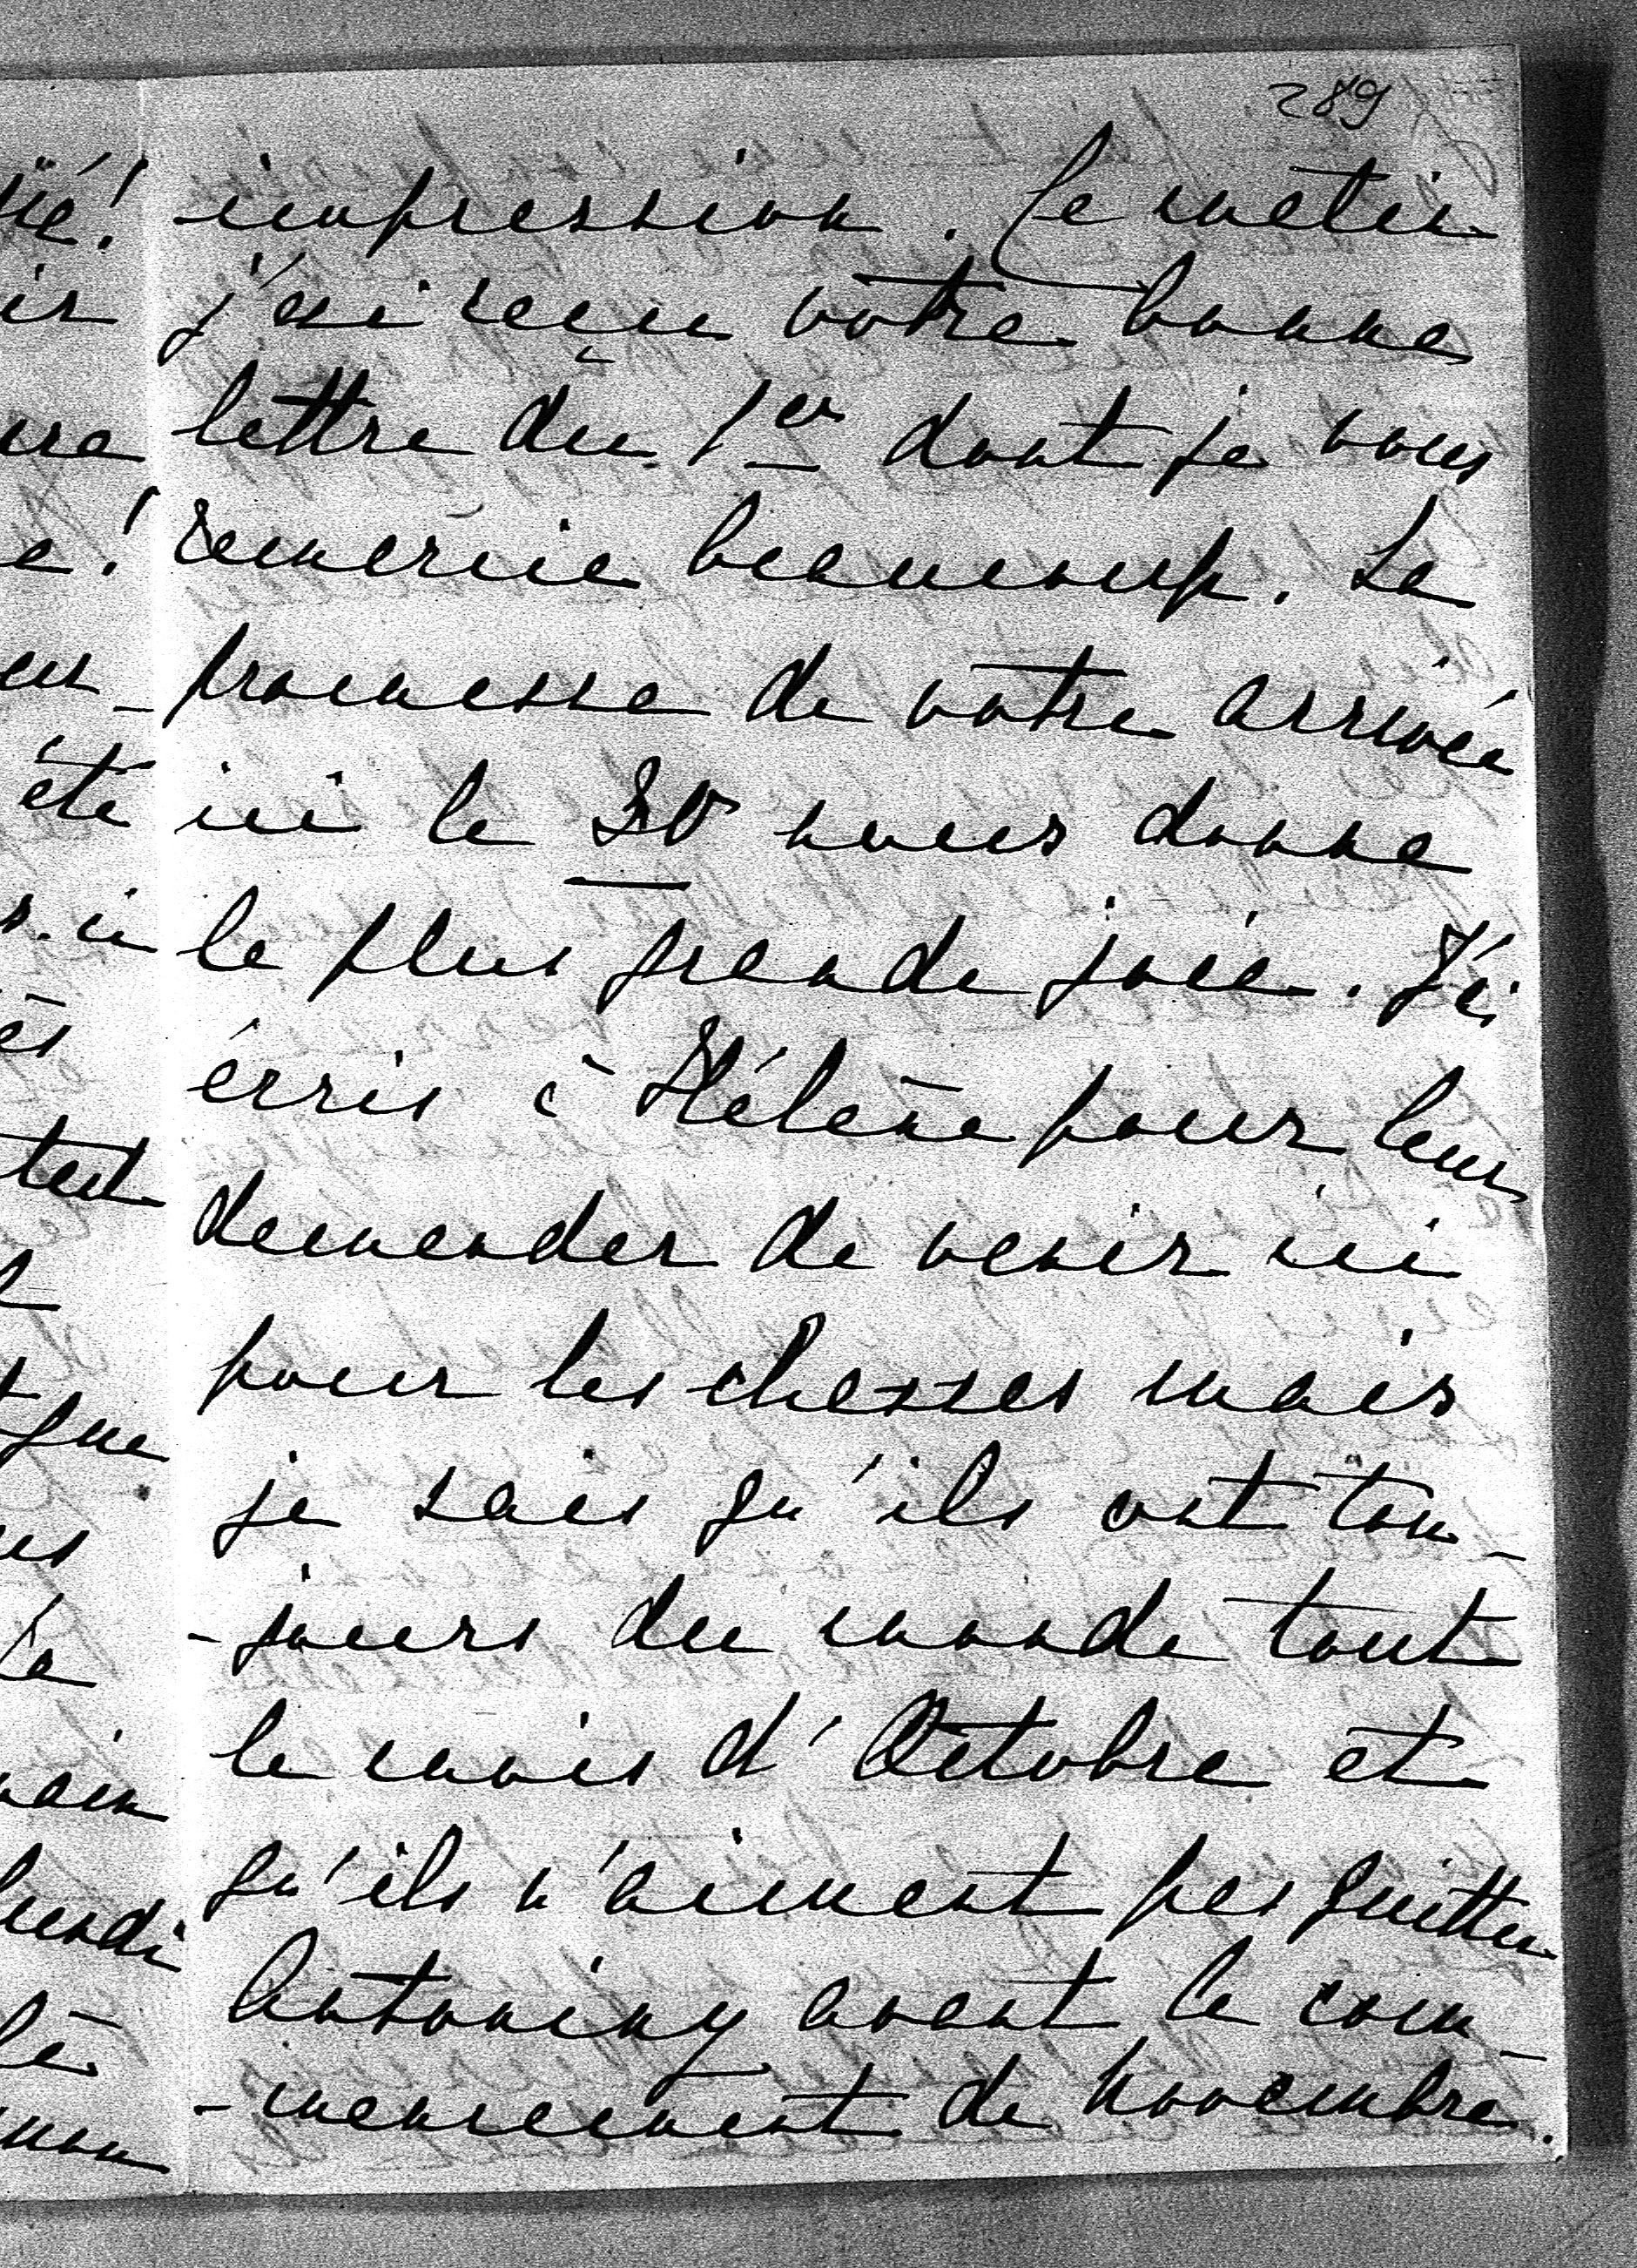 289
impression. Ce matin
j'ai reçu votre bonne
lettre du 1er dont je vous
remercie beaucoup. La
promesse de votre arrivée
ici le 30 nous donne
la plus grande joie. J'ai
écris à Hélène pour leur
demander de venir ici
pour les chasses mais
je sais qu'ils ont tou-
-jours du monde tout
le mois d'Octobre et
qu'ils n'aiment pas quitter
Antoniny avant le com-
-mencement de Novembre.